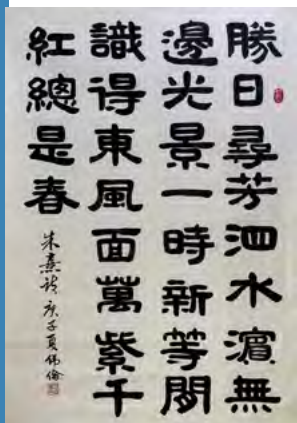 勝日尋芳泗水濵無
邊光景一時新等閒
識得東風面萬紫千
紅總是春
朱熹詩 庚子夏伟倫